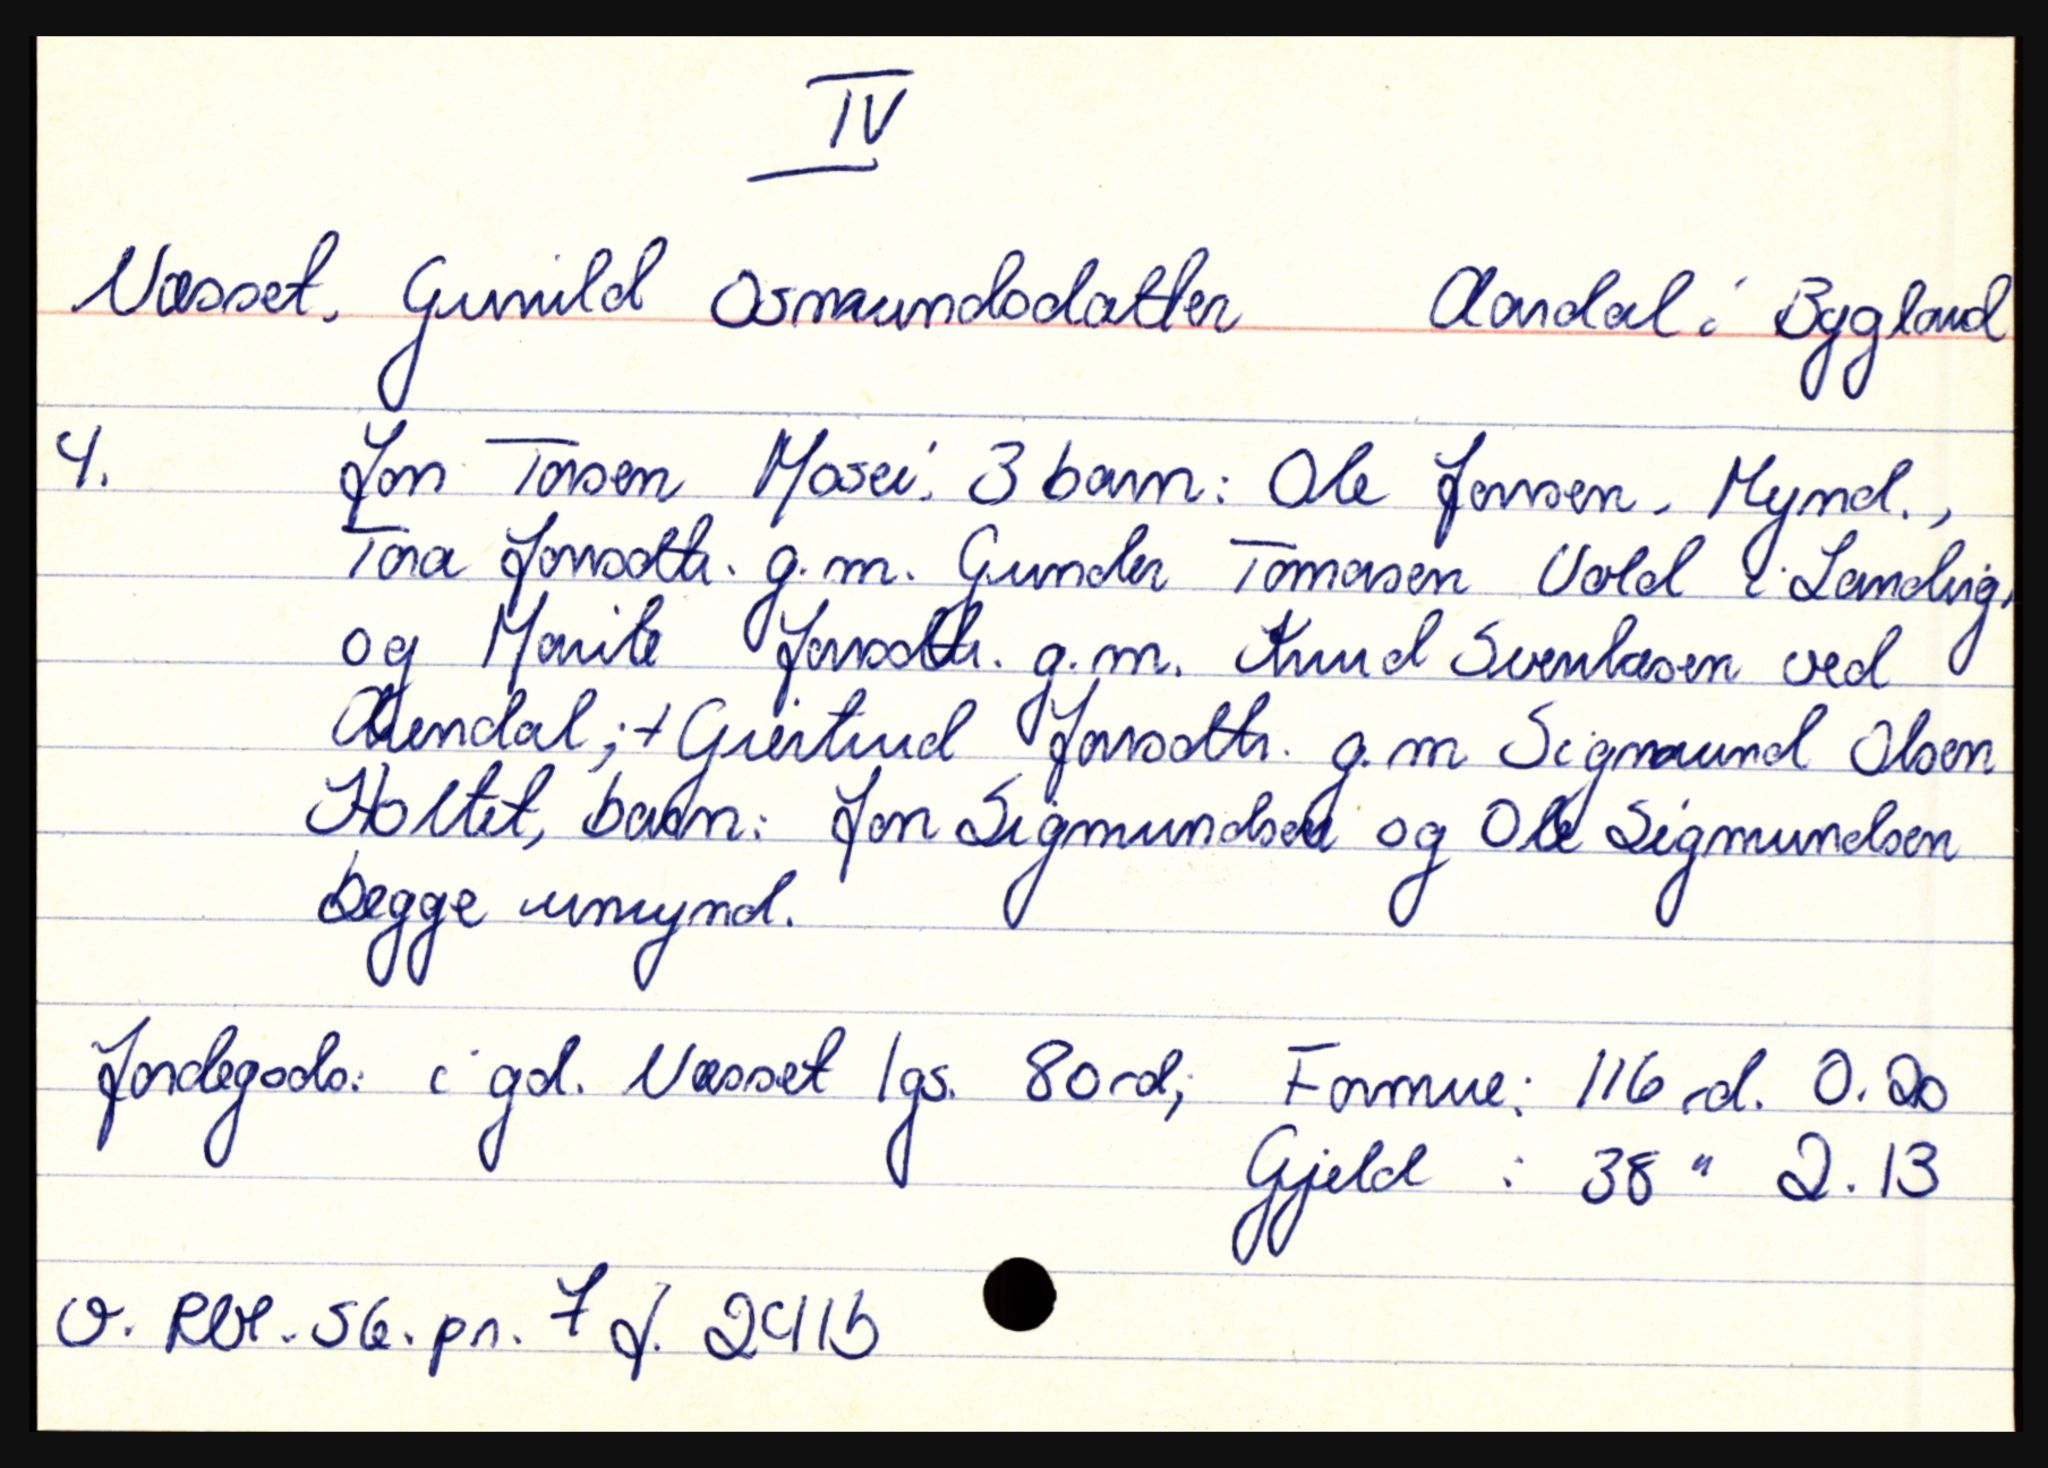 IV
Næsset, Gunild Osmundsdatter Aardal i Bygland
4. Jon Torsen Mosei: 3 barn: Ole Jonsen, Mynd.,
Tora Jonsdtr. g.m. Gunder Tomasen Vold i Landvig,
og Marite Jonsdtr. g.m. Knud Svenkesen ved
Arendal; + Giertrud Jonsdtr. g.m Sigmund Olsen
Holtet, barn: Jon Sigmundsen og Ole Sigmundsen
begge umynd.
Jordegods: i gd. Næsset 1 gs. 80 rd; Formue: 116 rd. 0.20
Gjeld : 38 " 2.13
v. RVl. 56. pr. 7 f. 241b